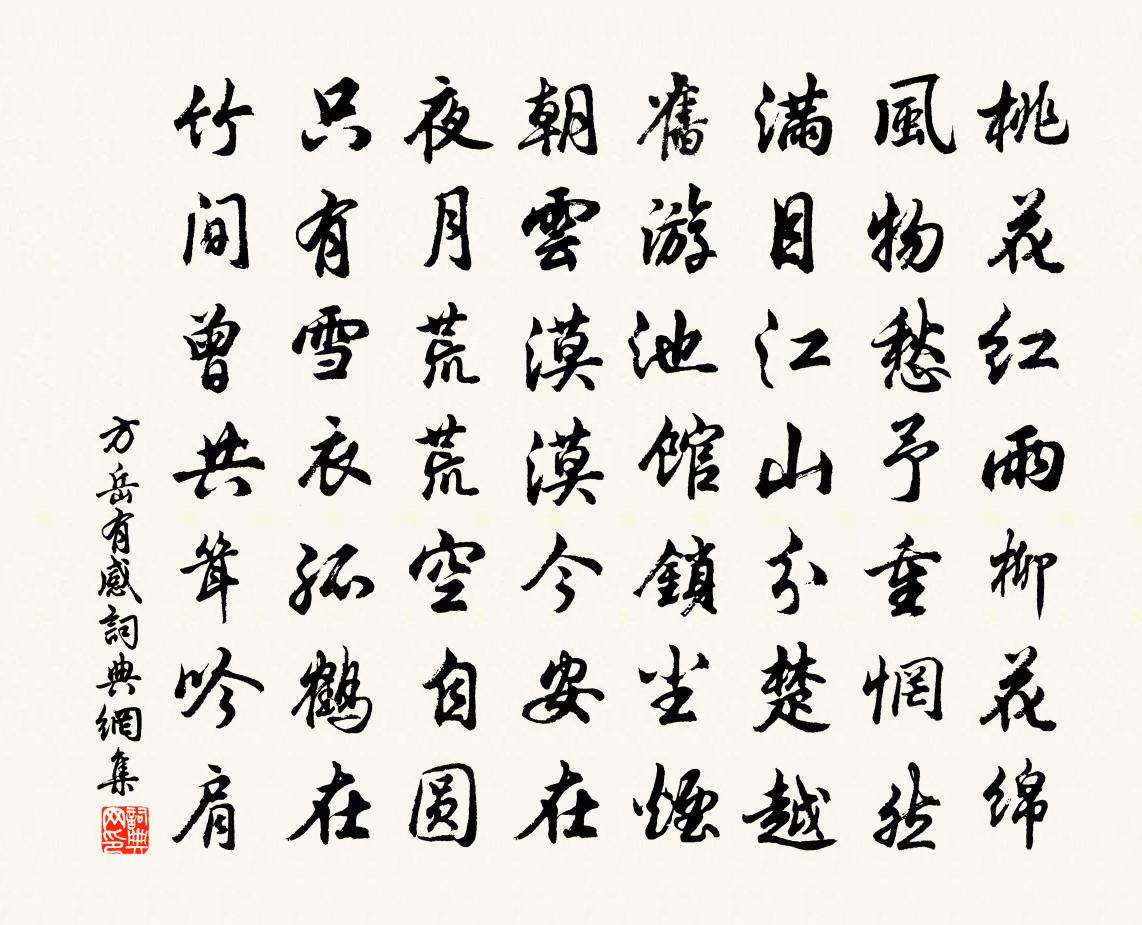 桃花红雨柳花绵
風物愁予重惘然
满目江山分楚越
舊游池馆鎖尘煙
朝雲漠漠今安在
夜月荒荒空自圆
只有雪衣孤鶴在
竹间曾共耸吟肩
方岳有感詞典網集
詞典网印